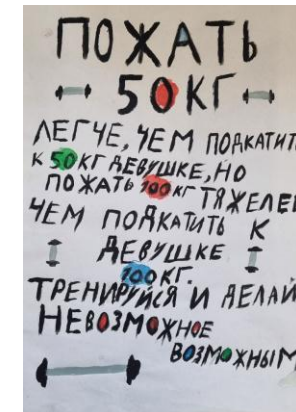 ПОЖАТЬ
50КГ
ЛЕГЧЕ, ЧЕМ ПОДКАТИТЬ
К 50КГ ДЕВУШКЕ, НО
ПОЖАТЬ 100КГ ТЯЖЕЛЕЕ
ЧЕМ ПОДКАТИТЬ К
ДЕВУШКЕ
100КГ.
ТРЕНИРУЙСЯ И ДЕЛАЙ
НЕВОЗМОЖНОЕ
ВОЗМОЖНЫМ